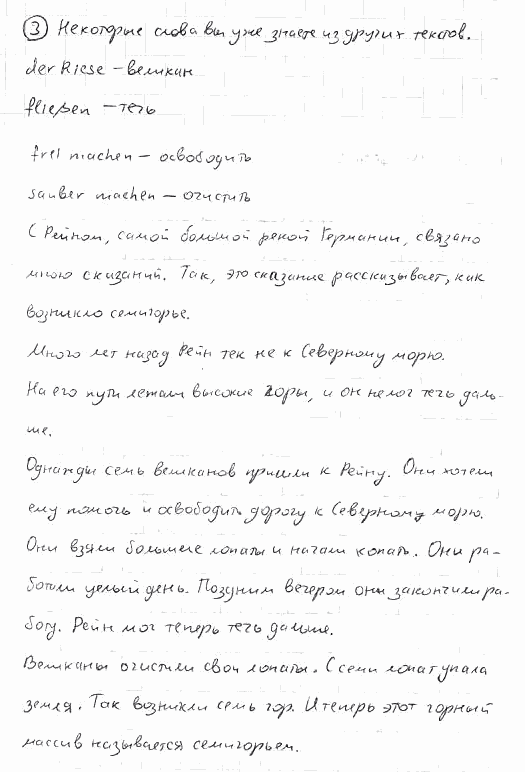 ③ Некоторые слова вы уже знаете из других текстов.
der Riese – великан
fließen – течь
frei machen – освободить
sauber machen – очистить
С Рейном, самой большой рекой Германии, связано
много сказаний. Так, это сказание рассказывает, как
возникло семигорье.
Много лет назад Рейн тек не к Северному морю.
На его пути лежали высокие горы, и он не мог течь даль-
ше.
Однажды семь великанов пришли к Рейну. Они хотели
ему помочь и освободить дорогу к Северному морю.
Они взяли большие лопаты и начали копать. Они ра-
ботали целый день. Поздним вечером они закончили ра-
боту. Рейн мог теперь течь дальше.
Великаны очистили свои лопаты. С семи лопат упала
земля. Так возникли семь гор. И теперь этот горный
массив называется семигорьем.